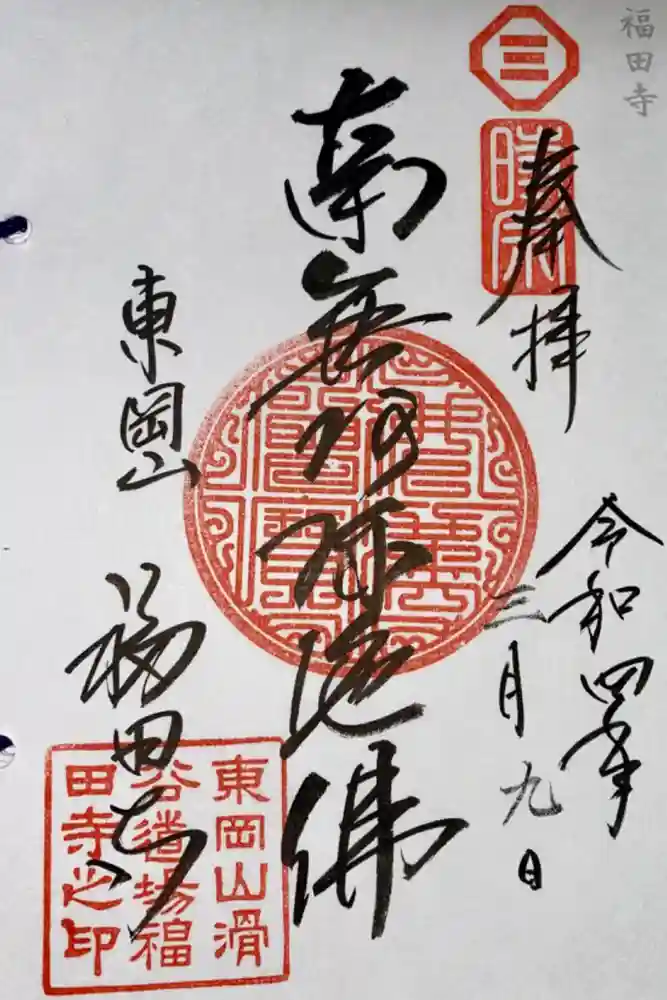 福田寺
奉拝
令和四年
三月九日
南無阿弥陀佛
東岡山
福田寺
東岡山滑
谷道場福
田寺之印